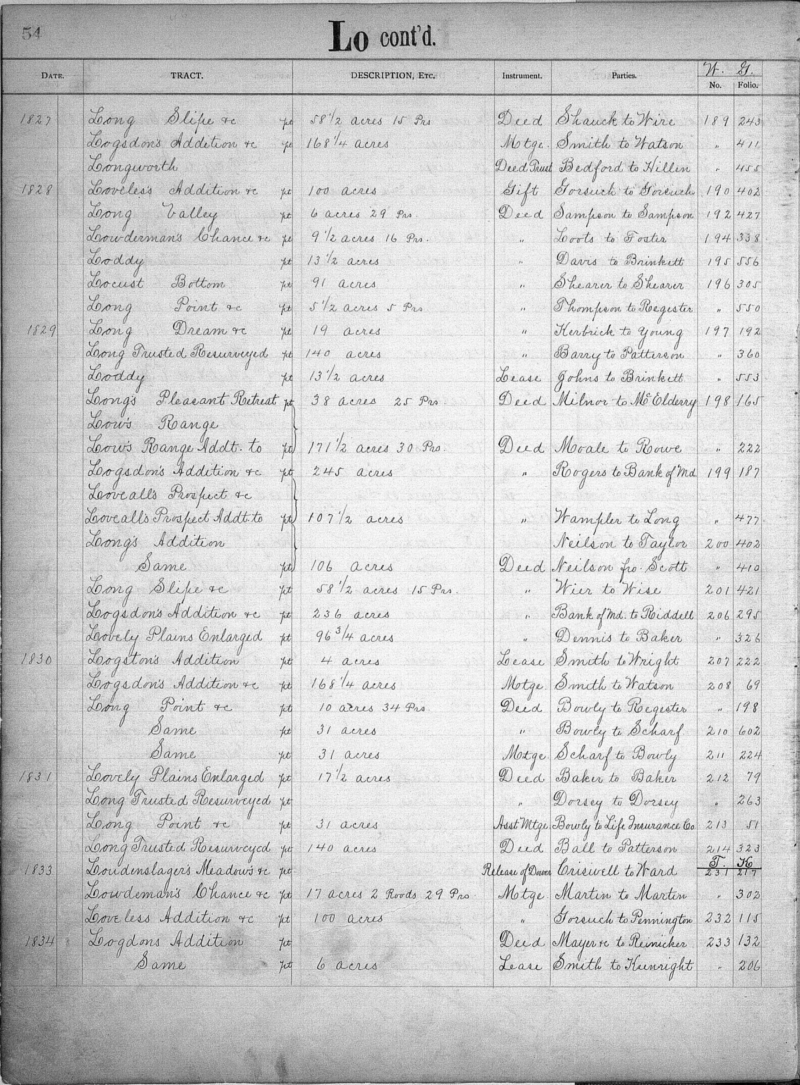 54
Lo cont'd.
W. G.
DATE. TRACT. DESCRIPTION, ETC. Instrument. Parties. No. Folio.
1827 Long Slipe &c pt 58 1/2 acres 15 Prs Deed Shauck to Wire 189 243
Logsdon's Addition &c pt 168 1/4 acres Mtge Smith to Watson " 411
Longworth Deed Trust Bedford to Hillen " 455
1828 Loveless Addition &c pt 100 acres Gift Gorsuch to Gorsuch 190 402
Long Valley pt 6 acres 29 Prs. Deed Sampson to Sampson 192 427
Lowderman's Chance &c pt 9 1/2 acres 16 Prs. " Loots to Foster 194 338
Loddy pt 13 1/2 acres " Davis to Brinkett 195 556
Locust Bottom pt 91 acres " Shearer to Shearer 196 305
Long Point &c pt 5 1/2 acres 5 Prs " Thompson to Regester " 550
1829 Long Dream &c pt 19 acres " Kerbrick to Young 197 192
Long Trusted Resurveyed pt 140 acres " Barry to Patterson " 360
Loddy pt 13 1/2 acres Lease Johns to Brinkett " 553
Long's Pleasant Retreat pt 38 acres 25 Prs Deed Milnor to McElderry 198 165
Low's Range
Low's Range Addt. to pt 171 1/2 acres 30 Prs. Deed Moale to Rowe " 222
Logsdon's Addition &c pt 245 acres " Rogers to Bank of Md 199 187
Lovealls Prospect &c
Lovealls Prospect Addt. to pt 107 1/2 acres " Wampler to Long " 477
Long's Addition Neilson to Taylor 200 402
Same pt 106 acres Deed Neilson fro. Scott " 410
Long Slipe &c pt 58 1/2 acres 15 Prs. " Wier to Wise 201 421
Logsdon's Addition &c pt 236 acres " Bank of Md. to Riddell 206 295
Lovely Plains Enlarged pt 96 3/4 acres " Dennis to Baker " 326
1830 Logston's Addition pt 4 acres Lease Smith to Wright 207 222
Logsdon's Addition &c pt 168 1/4 acres Mtge Smith to Watson 208 69
Long Point &c pt 10 acres 34 Prs. Deed Bowly to Regester " 198
Same pt 31 acres " Bowly to Scharf 210 602
Same pt 31 acres Mtge Scharf to Bowly 211 224
1831 Lovely Plains Enlarged pt 17 1/2 acres Deed Baker to Baker 212 79
Long Trusted Resurveyed pt " Dorsey to Dorsey " 263
Long Point &c pt 31 acres Asst Mtge Bowly to Life Insurance Co 213 51
Long Trusted Resurveyed pt 140 acres Deed Ball to Patterson 214 323
T. K.
1833 Loudenslager's Meadow's &c pt Release of Dower Criswell to Ward 231 217
Lowdeman's Chance &c pt 17 acres 2 Roods 29 Prs Mtge Martin to Martin " 302
Loveless Addition &c pt 100 acres " Gorsuch to Pennington 232 115
1834 Logdons Addition pt Deed Mayer &c to Reinicker 233 132
Same pt 6 acres Lease Smith to Kunright " 206